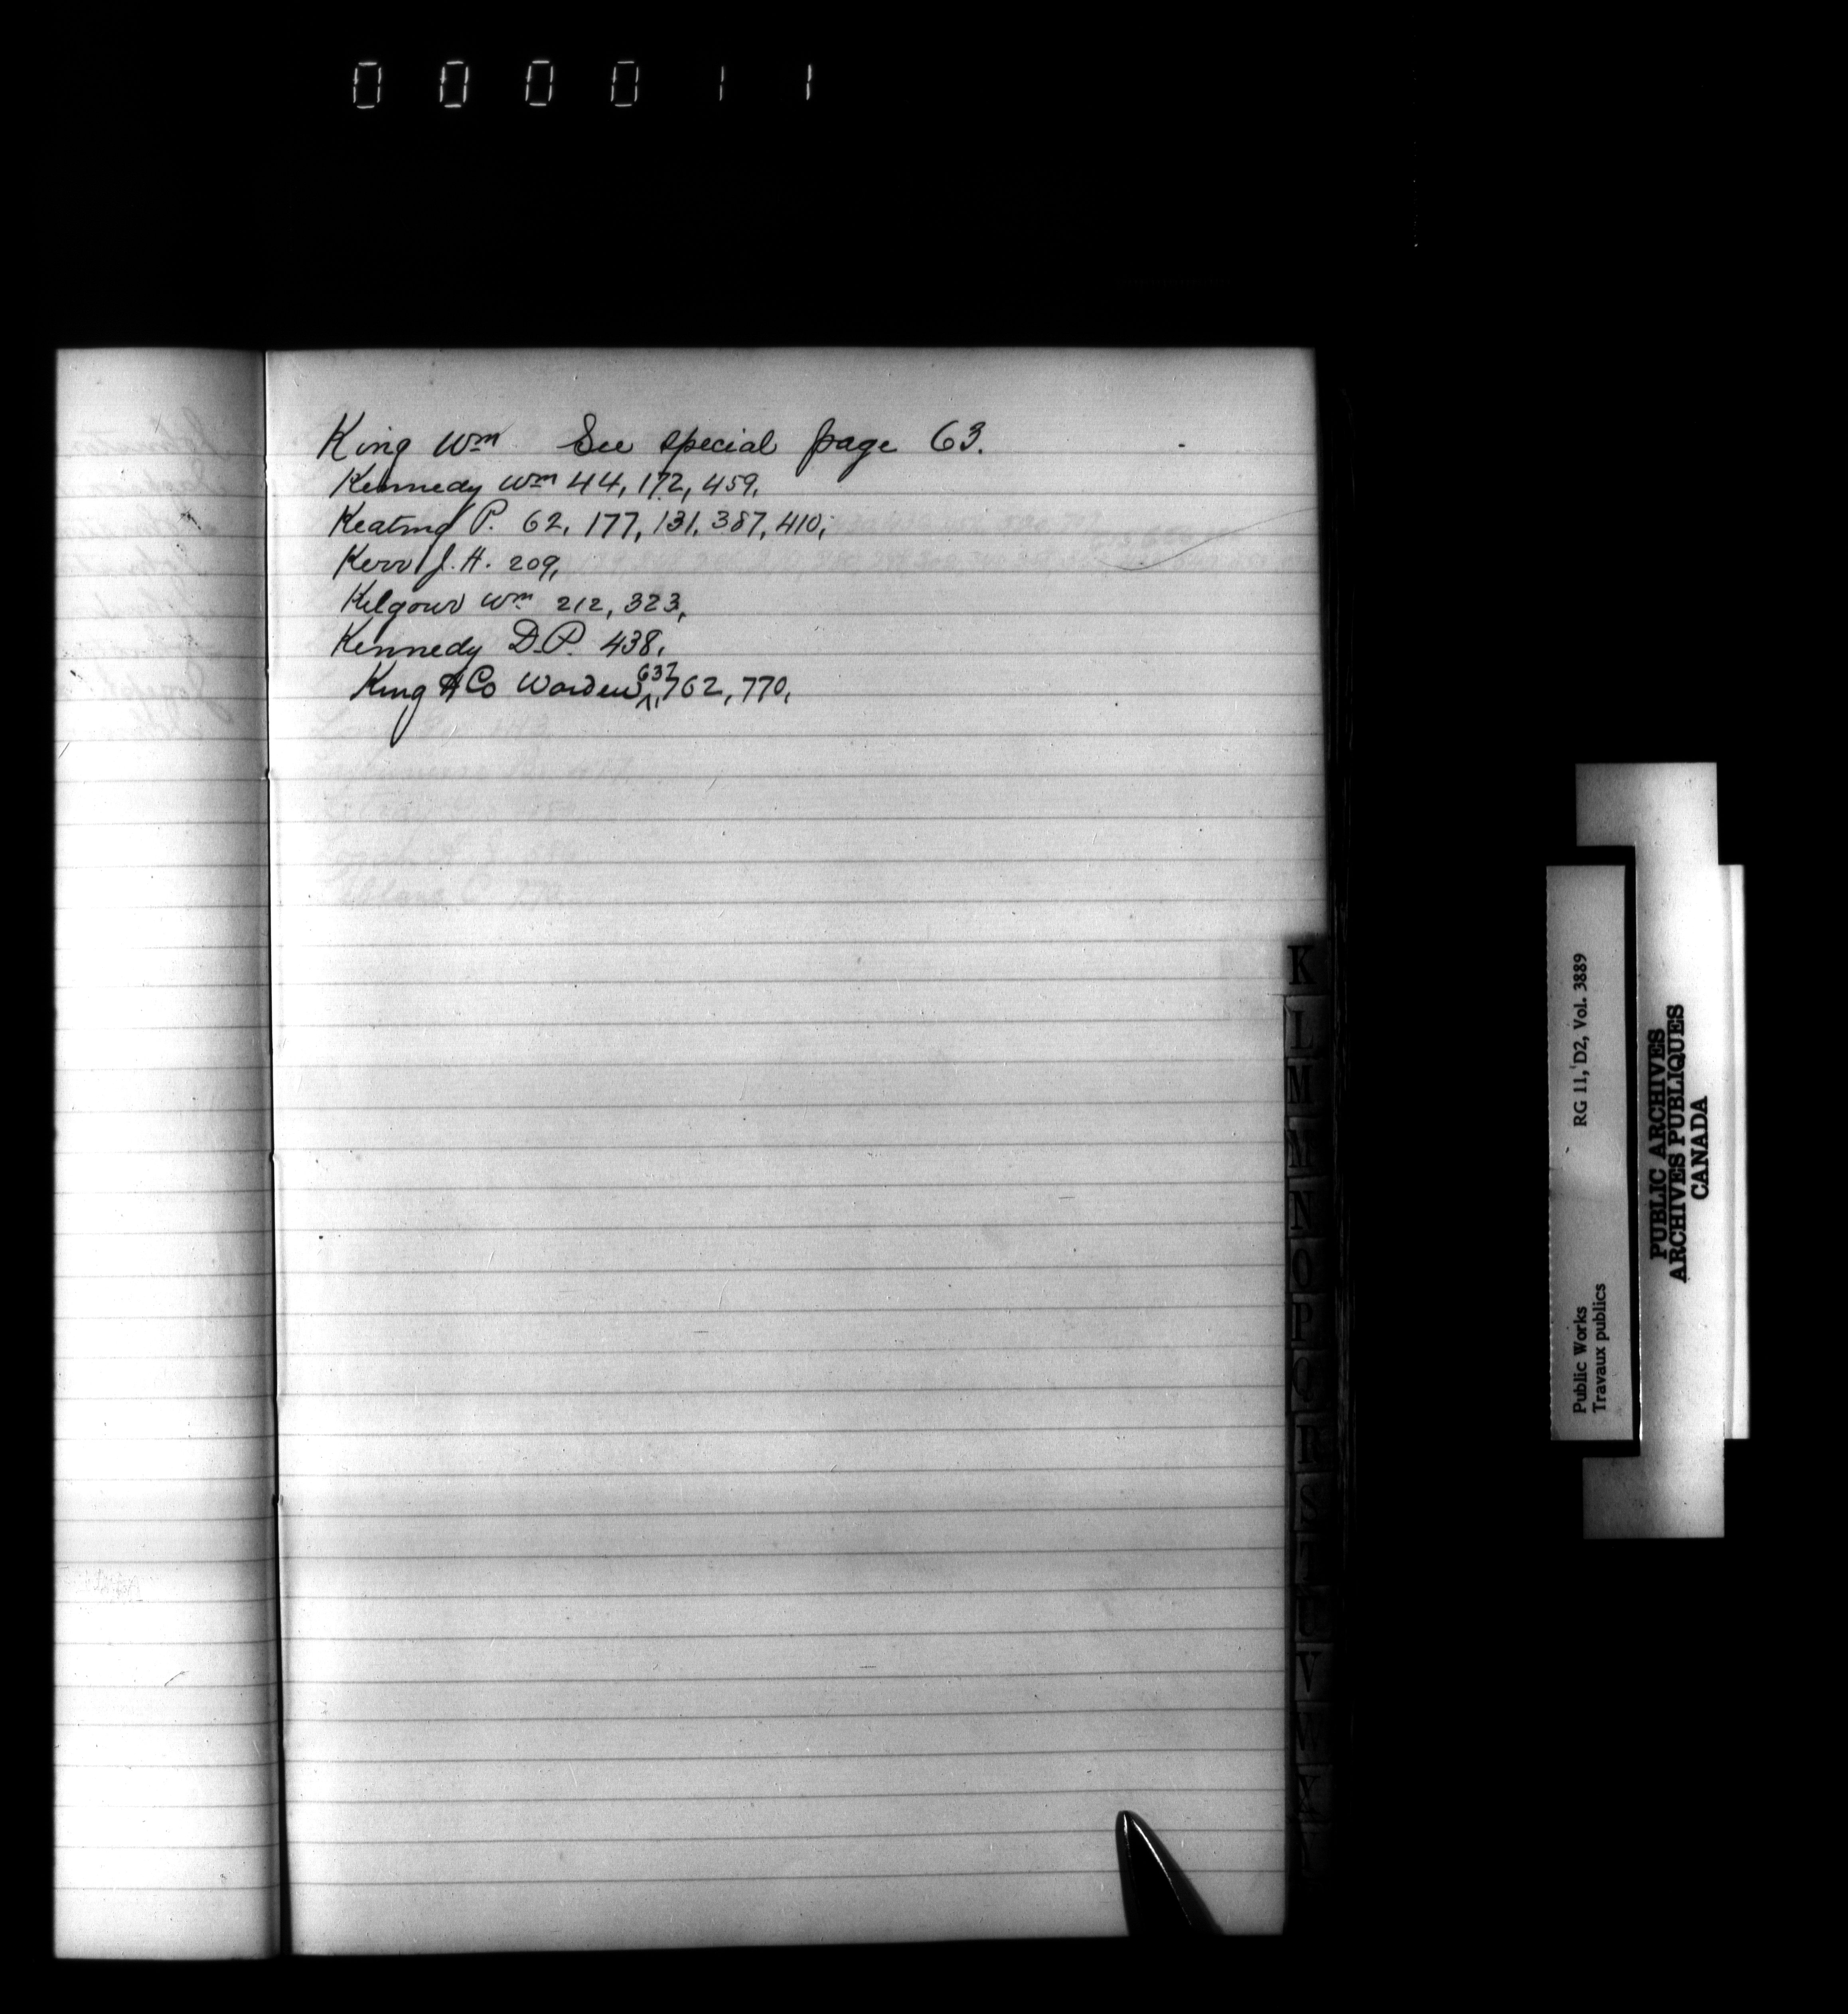 000011
King Wm See special page 63.
Kennedy Wm 44, 172, 459,
Keating P. 62, 177, 131, 387, 410,
Kerr J. H. 209,
Kilgour Wm 212, 323,
Kennedy D. P. 438,
King & Co Warden 637, 762, 770,
K
L
M
N
O
P
Q
R
S
T
V
W
Public Works RG 11, D2, Vol. 3889
Travaux publics
PUBLIC ARCHIVES
ARCHIVES PUBLIQUES
CANADA